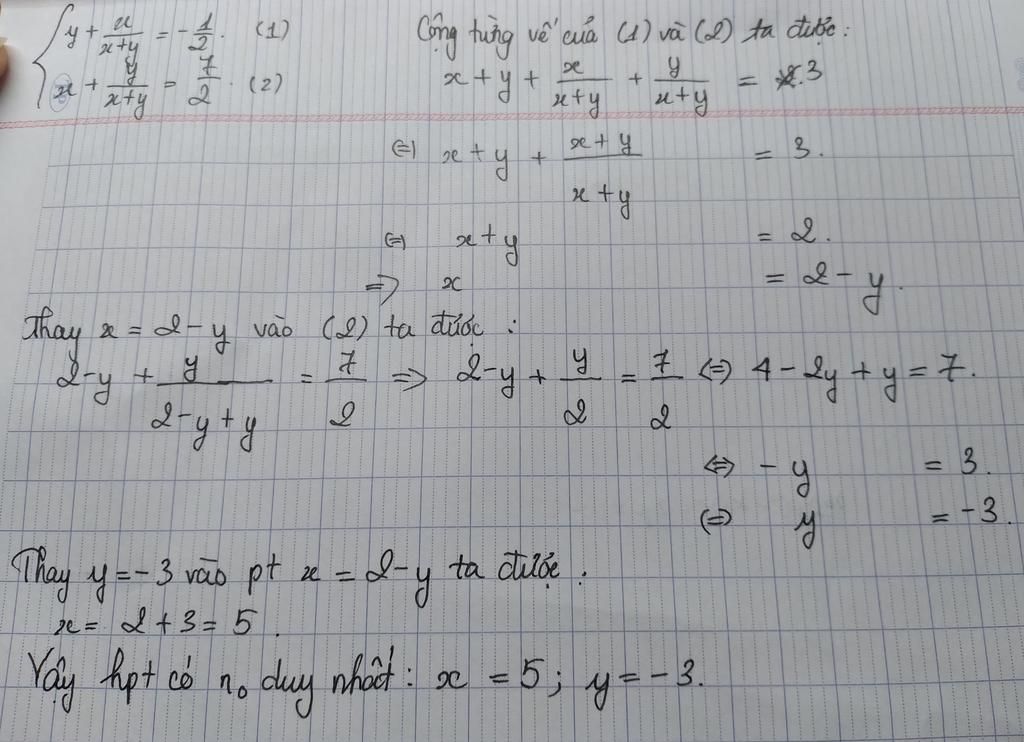 y + x/(x+y) = -1/2. (1)
x + y/(x+y) = 7/2. (2)
Cộng từng vế của (1) và (2) ta được:
x + y + x/(x+y) + y/(x+y) = 3
⇔ x + y + (x+y)/(x+y) = 3.
⇔ x+y = 2.
=> x = 2 - y.
Thay x = 2 - y vào (2) ta được :
2-y + y/(2-y+y) = 7/2 => 2-y + y/2 = 7/2 ⇔ 4 - 2y + y = 7.
⇔ - y = 3.
⇔ y = -3.
Thay y = -3 vào pt x = 2-y ta được :
x = 2 + 3 = 5.
Vậy hpt có n₀ duy nhất: x = 5; y = -3.